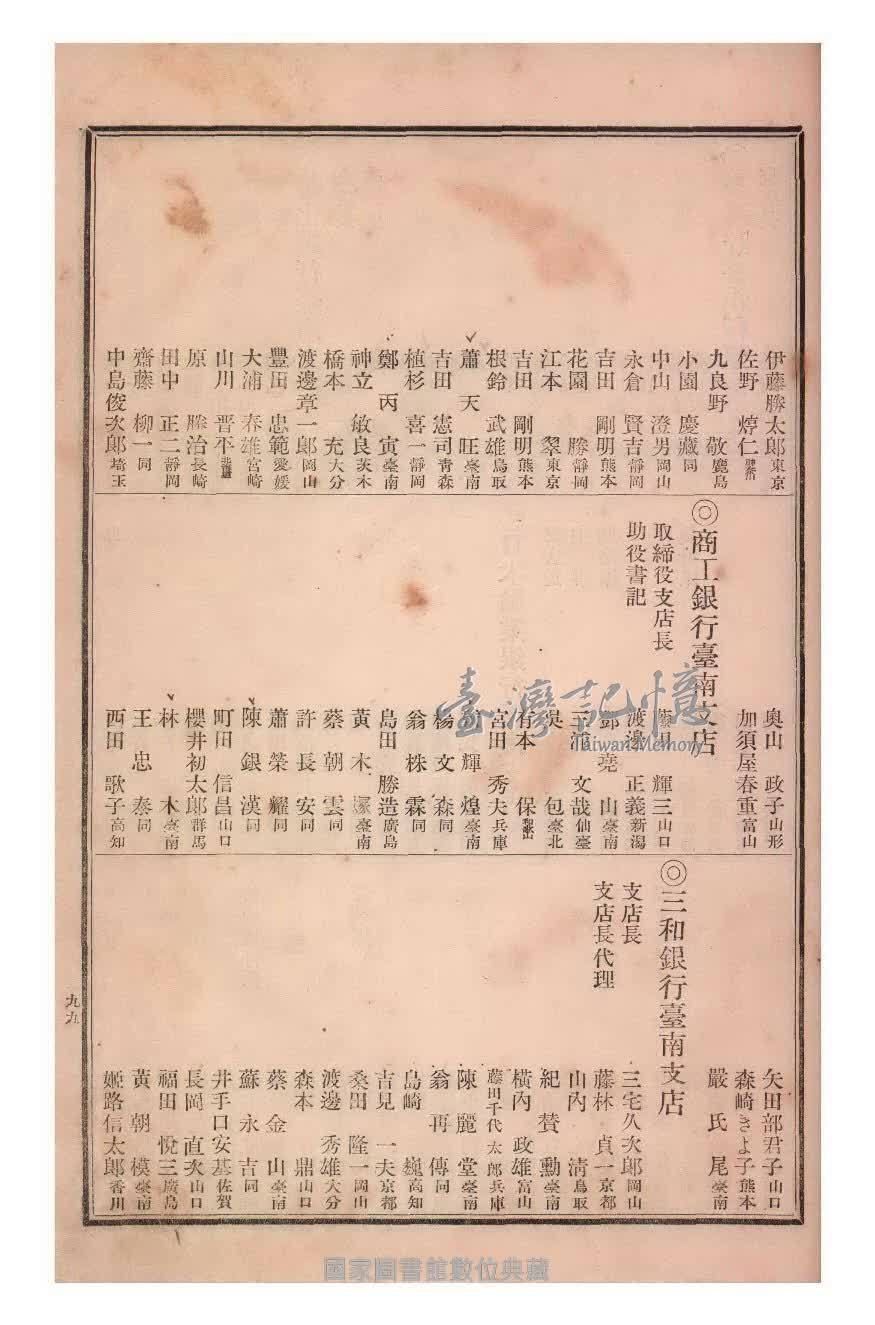 伊藤勝太郎 東京
佐野 焞仁
九良野 敬 鹿島
小園 慶藏 同
中山 澄男 岡山
永倉 賢吉 靜岡
吉田 剛明 熊本
花園 勝 靜岡
江本 翠 東京
吉田 剛明 熊本
根鈴 武雄 鳥取
蕭天旺 臺南
吉田 憲司 靑森
植杉 喜一 靜岡
鄭丙寅 臺南
神立 敏良 茨木
橋本 充 大分
渡邊章一郎 岡山
豐田 忠範 愛媛
大浦 春雄 宮崎
山川 晋平
原 勝治 長崎
田中 正二 靜岡
齋藤 柳一 同
中島俊次郎 埼玉
奥山 政子 山形
加須屋春重 富山
◎商工銀行臺南支店
取締役支店長 輝三 山口
助役書記 渡邊 正義 新潟
堯山 臺南
三浦 文哉 仙臺
吳 包 臺北
有本 保 和歌山
宮田 秀夫 兵庫
輝煌 臺南
楊文森 同
翁株霖 同
島田 勝造 廣島
黃木 臺南
蔡朝雲 同
許長安 同
蕭榮耀 同
陳銀漢 同
町田 信昌 山口
櫻井初太郎 群馬
林 木 臺南
王忠泰 同
西田 歌子 高知
矢田部君子 山口
森崎きよ子 熊本
嚴氏尾 臺南
◎三和銀行臺南支店
支店長 三宅久次郎 岡山
支店長代理 藤林 貞一 京都
山內 淸 鳥取
紀贊勳 臺南
橫內 政雄 富山
藤田千代太郎 兵庫
陳麗堂 臺南
翁再傳 同
島崎 巍 高知
吉見 一夫 京都
桑田 隆一 岡山
渡邊 秀雄 大分
森本 鼎 山口
蔡金山 臺南
蘇永吉 同
井手口安基 佐賀
長岡 直次 山口
福田 悅三 廣島
黃朝模 臺南
姬路信太郎 香川
九九
臺灣記憶
Taiwan Memory
國家圖書館數位典藏